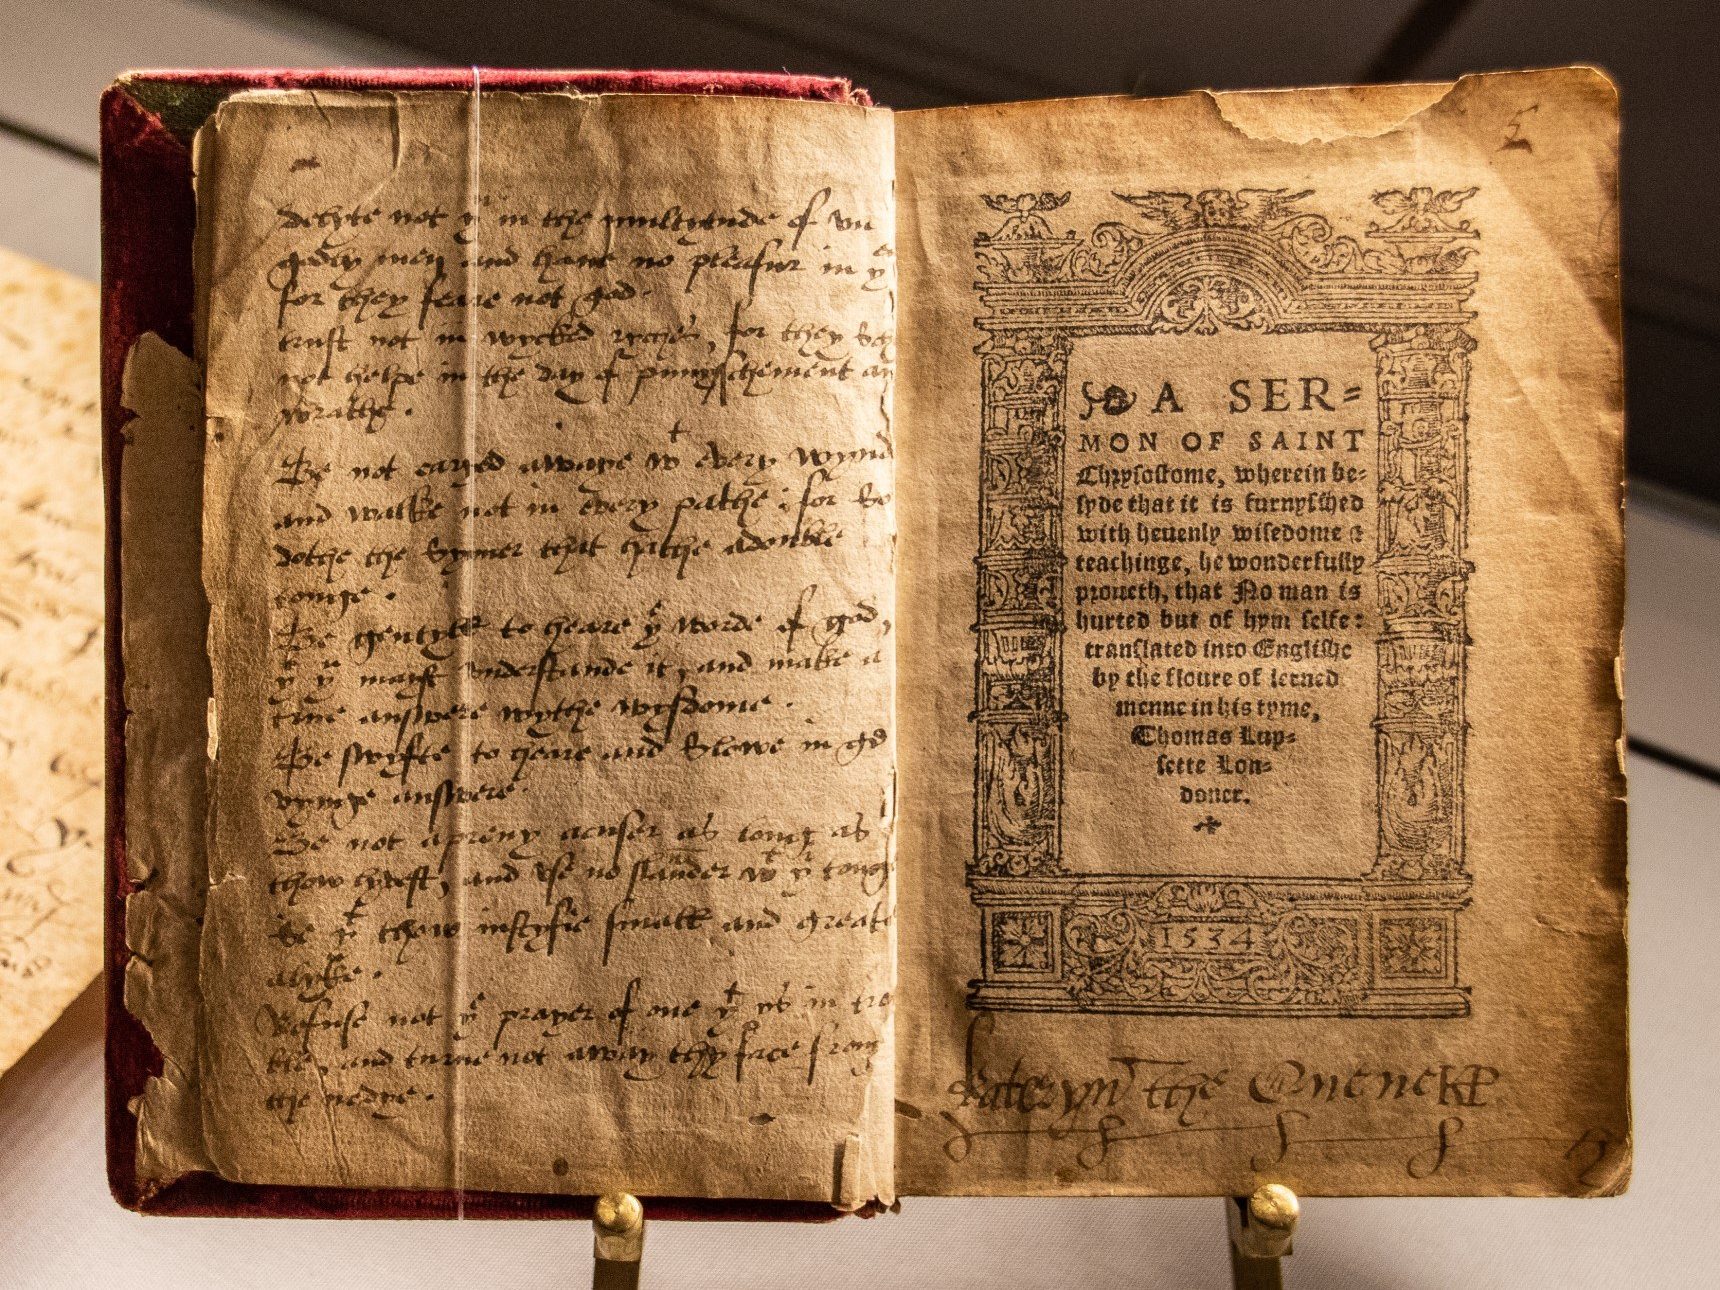 delyte not yr in the multytude of vn
godly men and haue no pleasur in
for they feare not god.
trust not in wycked ryches, for they
not helpe in the day of punyschement an
wrathe.
Be not caryed awaye wt euery wynd
and walke not in euery pathe: for so
dothe the synner that hathe a double
tonge.
Be gentyll to heare ye worde of god,
yt yu mayst vnderstande it, and make a
true answere wythe wysdome.
Be swyfte to heare and slowe in ge
vynge answere.
Be not a preuy acuser as long as
thow lyuest, and vse no slander wt yr tonge
Se yt thow iustyfie small and greate
alyke.
Refuse not ye prayer of one yt ys in tro
ble, and turne not away thy face from
the nedye.
5
A SER=
MON OF SAINT
Chrysostome, wherein be-
syde that it is furnysshed
with heuenly wisedome &
teachinge, he wonderfully
proueth, that No man is
hurted but of hym selfe:
translated into Englisshe
by the floure of lerned
menne in his tyme,
Thomas Lup-
sette Lon-
doner.
1534
Kateryn the Quene KP